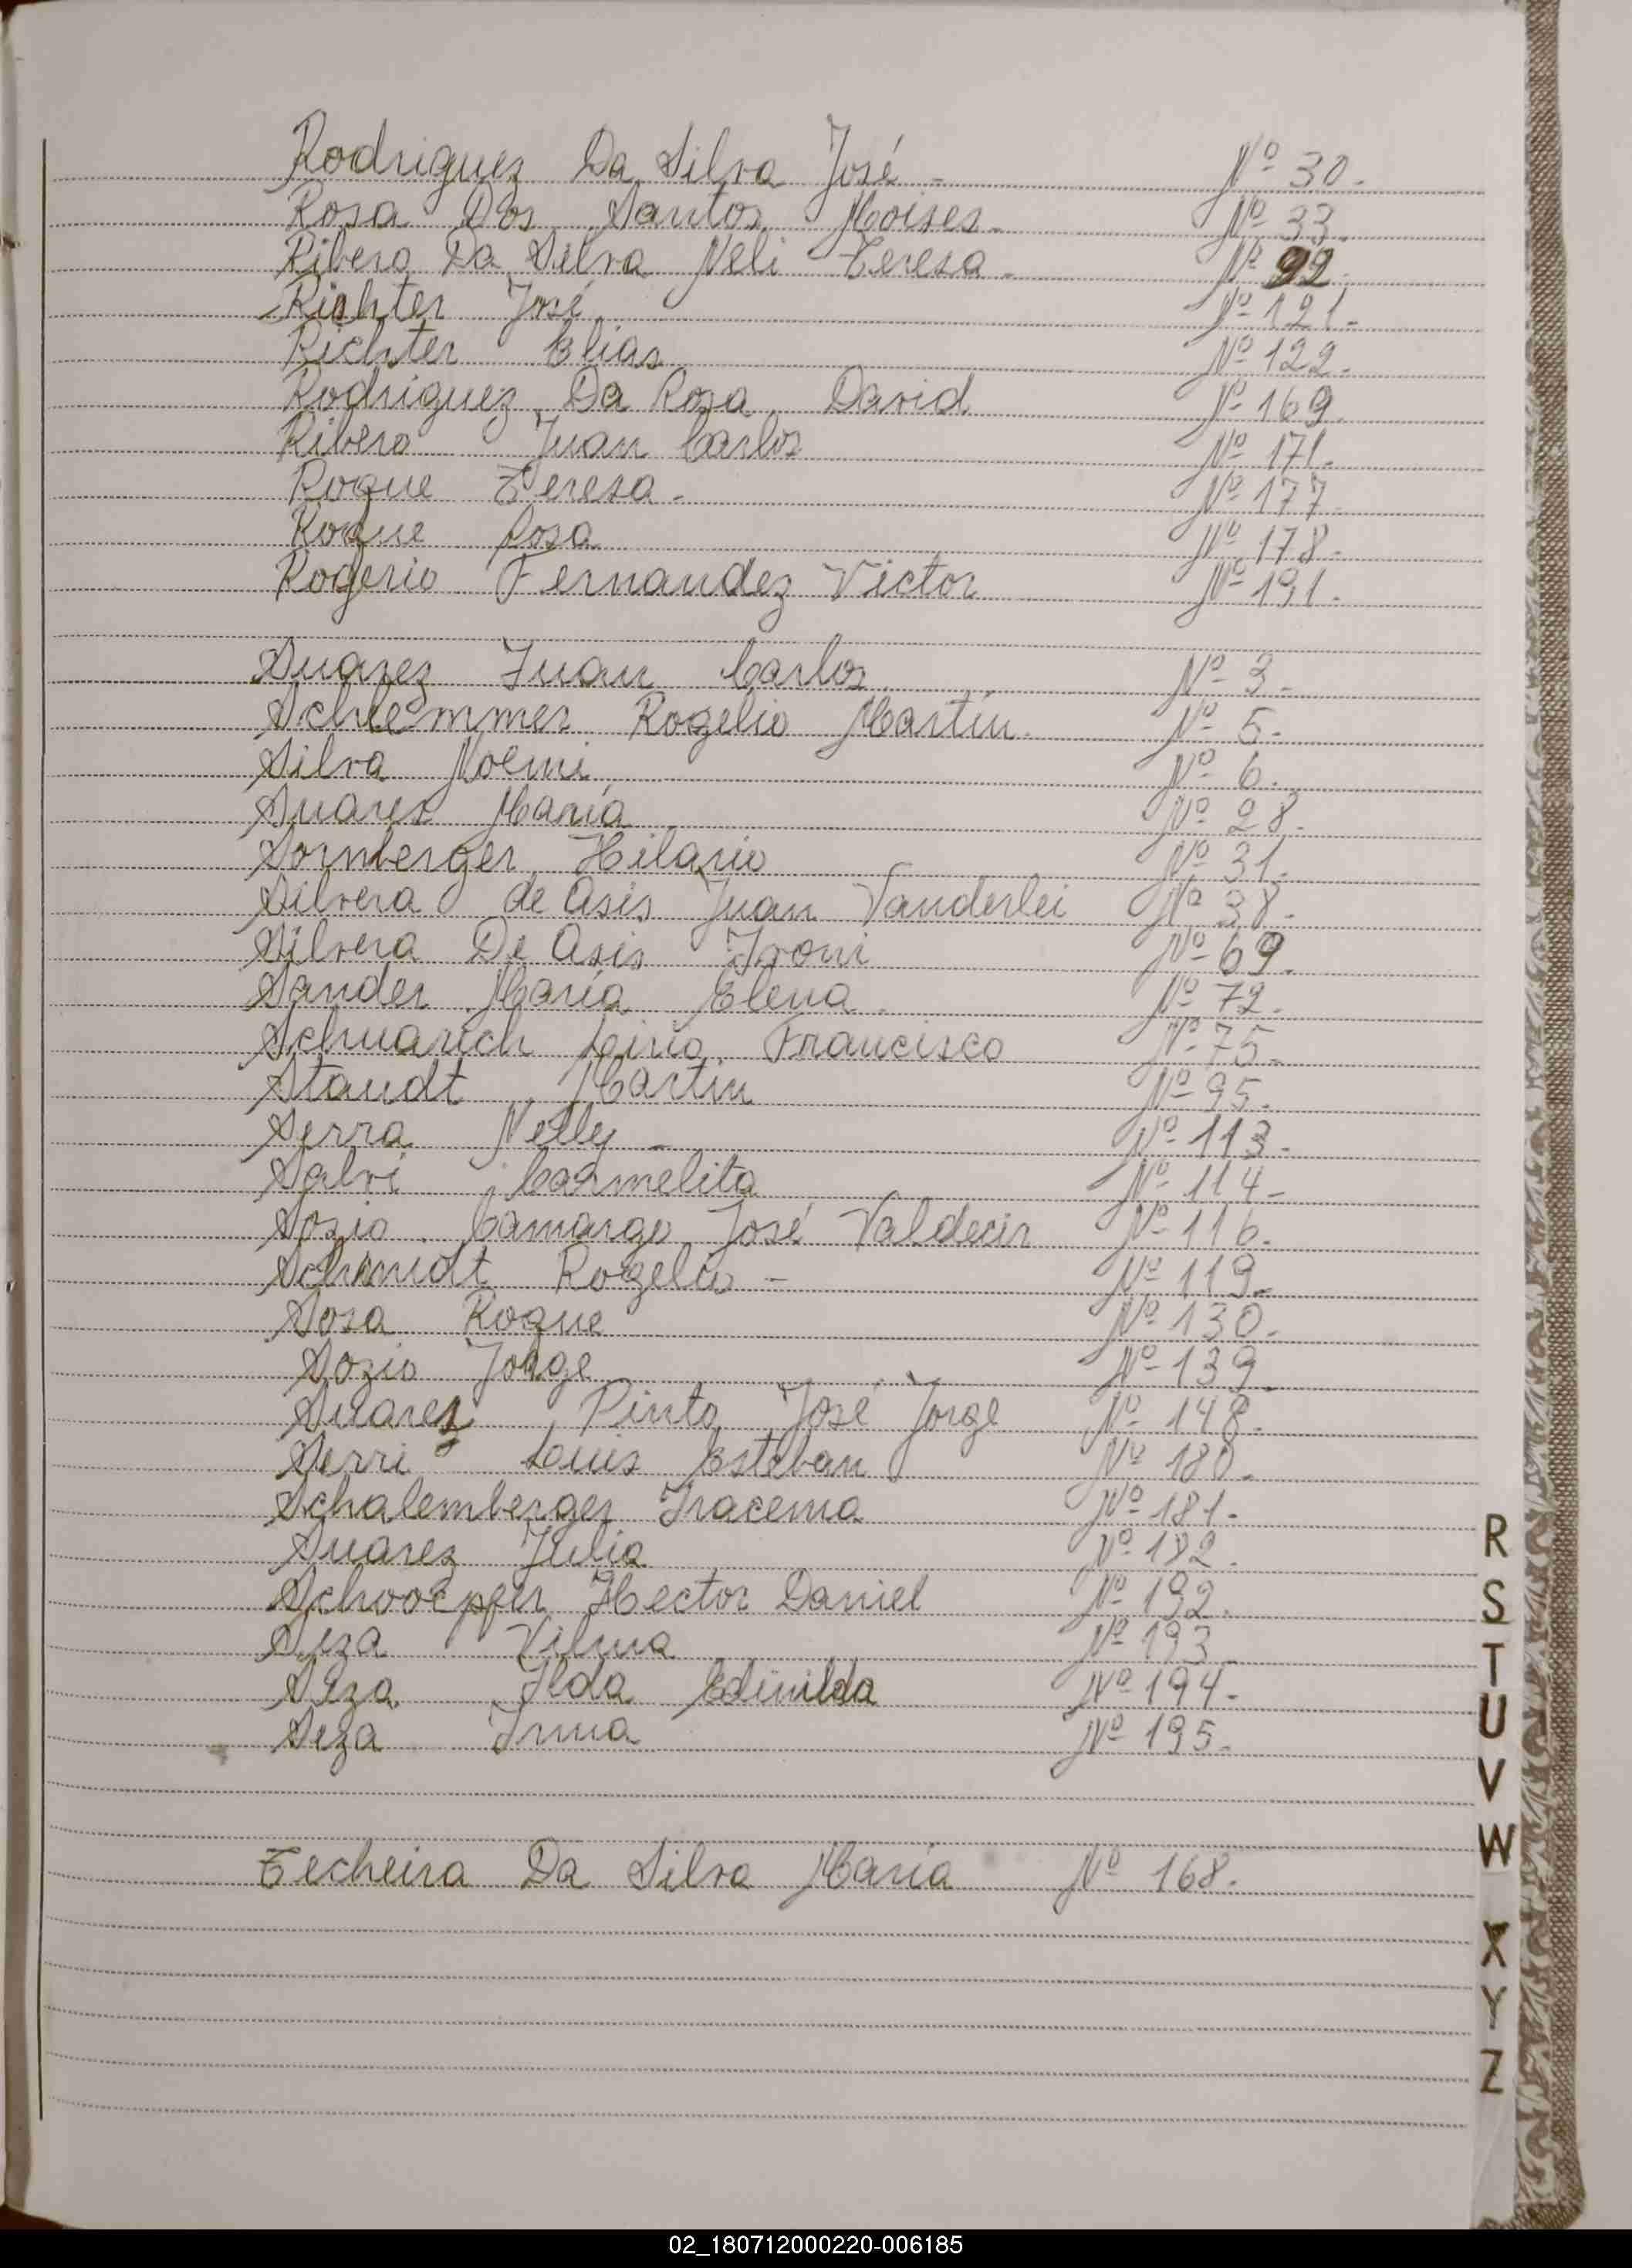 Rodriguez Da Silva José - Nº 30.
Rosa Dos Santos Moises. Nº 33.
Ribero Da Silva Neli Teresa. Nº 92.
Richter José Nº 121.
Richter Elias Nº 122.
Rodriguez Da Rosa David Nº 169.
Ribero Juan Carlos Nº 171.
Roque Teresa. Nº 177.
Roque Rosa Nº 178.
Rogerio Fernandez Victor Nº 191.
Suarez Juan Carlos Nº 3.
Schlemmer Rogelio Martín. Nº 5.
Silva Noemi Nº 6.
Suares María Nº 28.
Sornberger Hilario Nº 31.
Silvera de Asis Juan Vanderlei Nº 38.
Silvera De Asis Ivoni Nº 69.
Sander María Elena. Nº 72.
Schuarich Francisco Nº 75.
Staudt Martin Nº 95.
Serra Nelly - Nº 113.
Salvi Carmelita Nº 114-
Sozio Camargo José Valdecir Nº 116.
Schmidt Rogelio - Nº 119.
Sosa Roque Nº 130.
Sozio Jorge Nº 139.
Suarez Pinto José Jorge Nº 148.
Serri Luis Esteban Nº 180.
Schalemberger Iracema Nº 181.
Suarez Julia Nº 182.
Hector Daniel Nº 192.
Seza Vilma Nº 193
Seza Ilda Edinilda Nº 194-
Seza Irma Nº 195.
Techeira Da Silva María Nº 168.
R
S
T
U
V
W
X
Y
Z
02_180712000220-006185